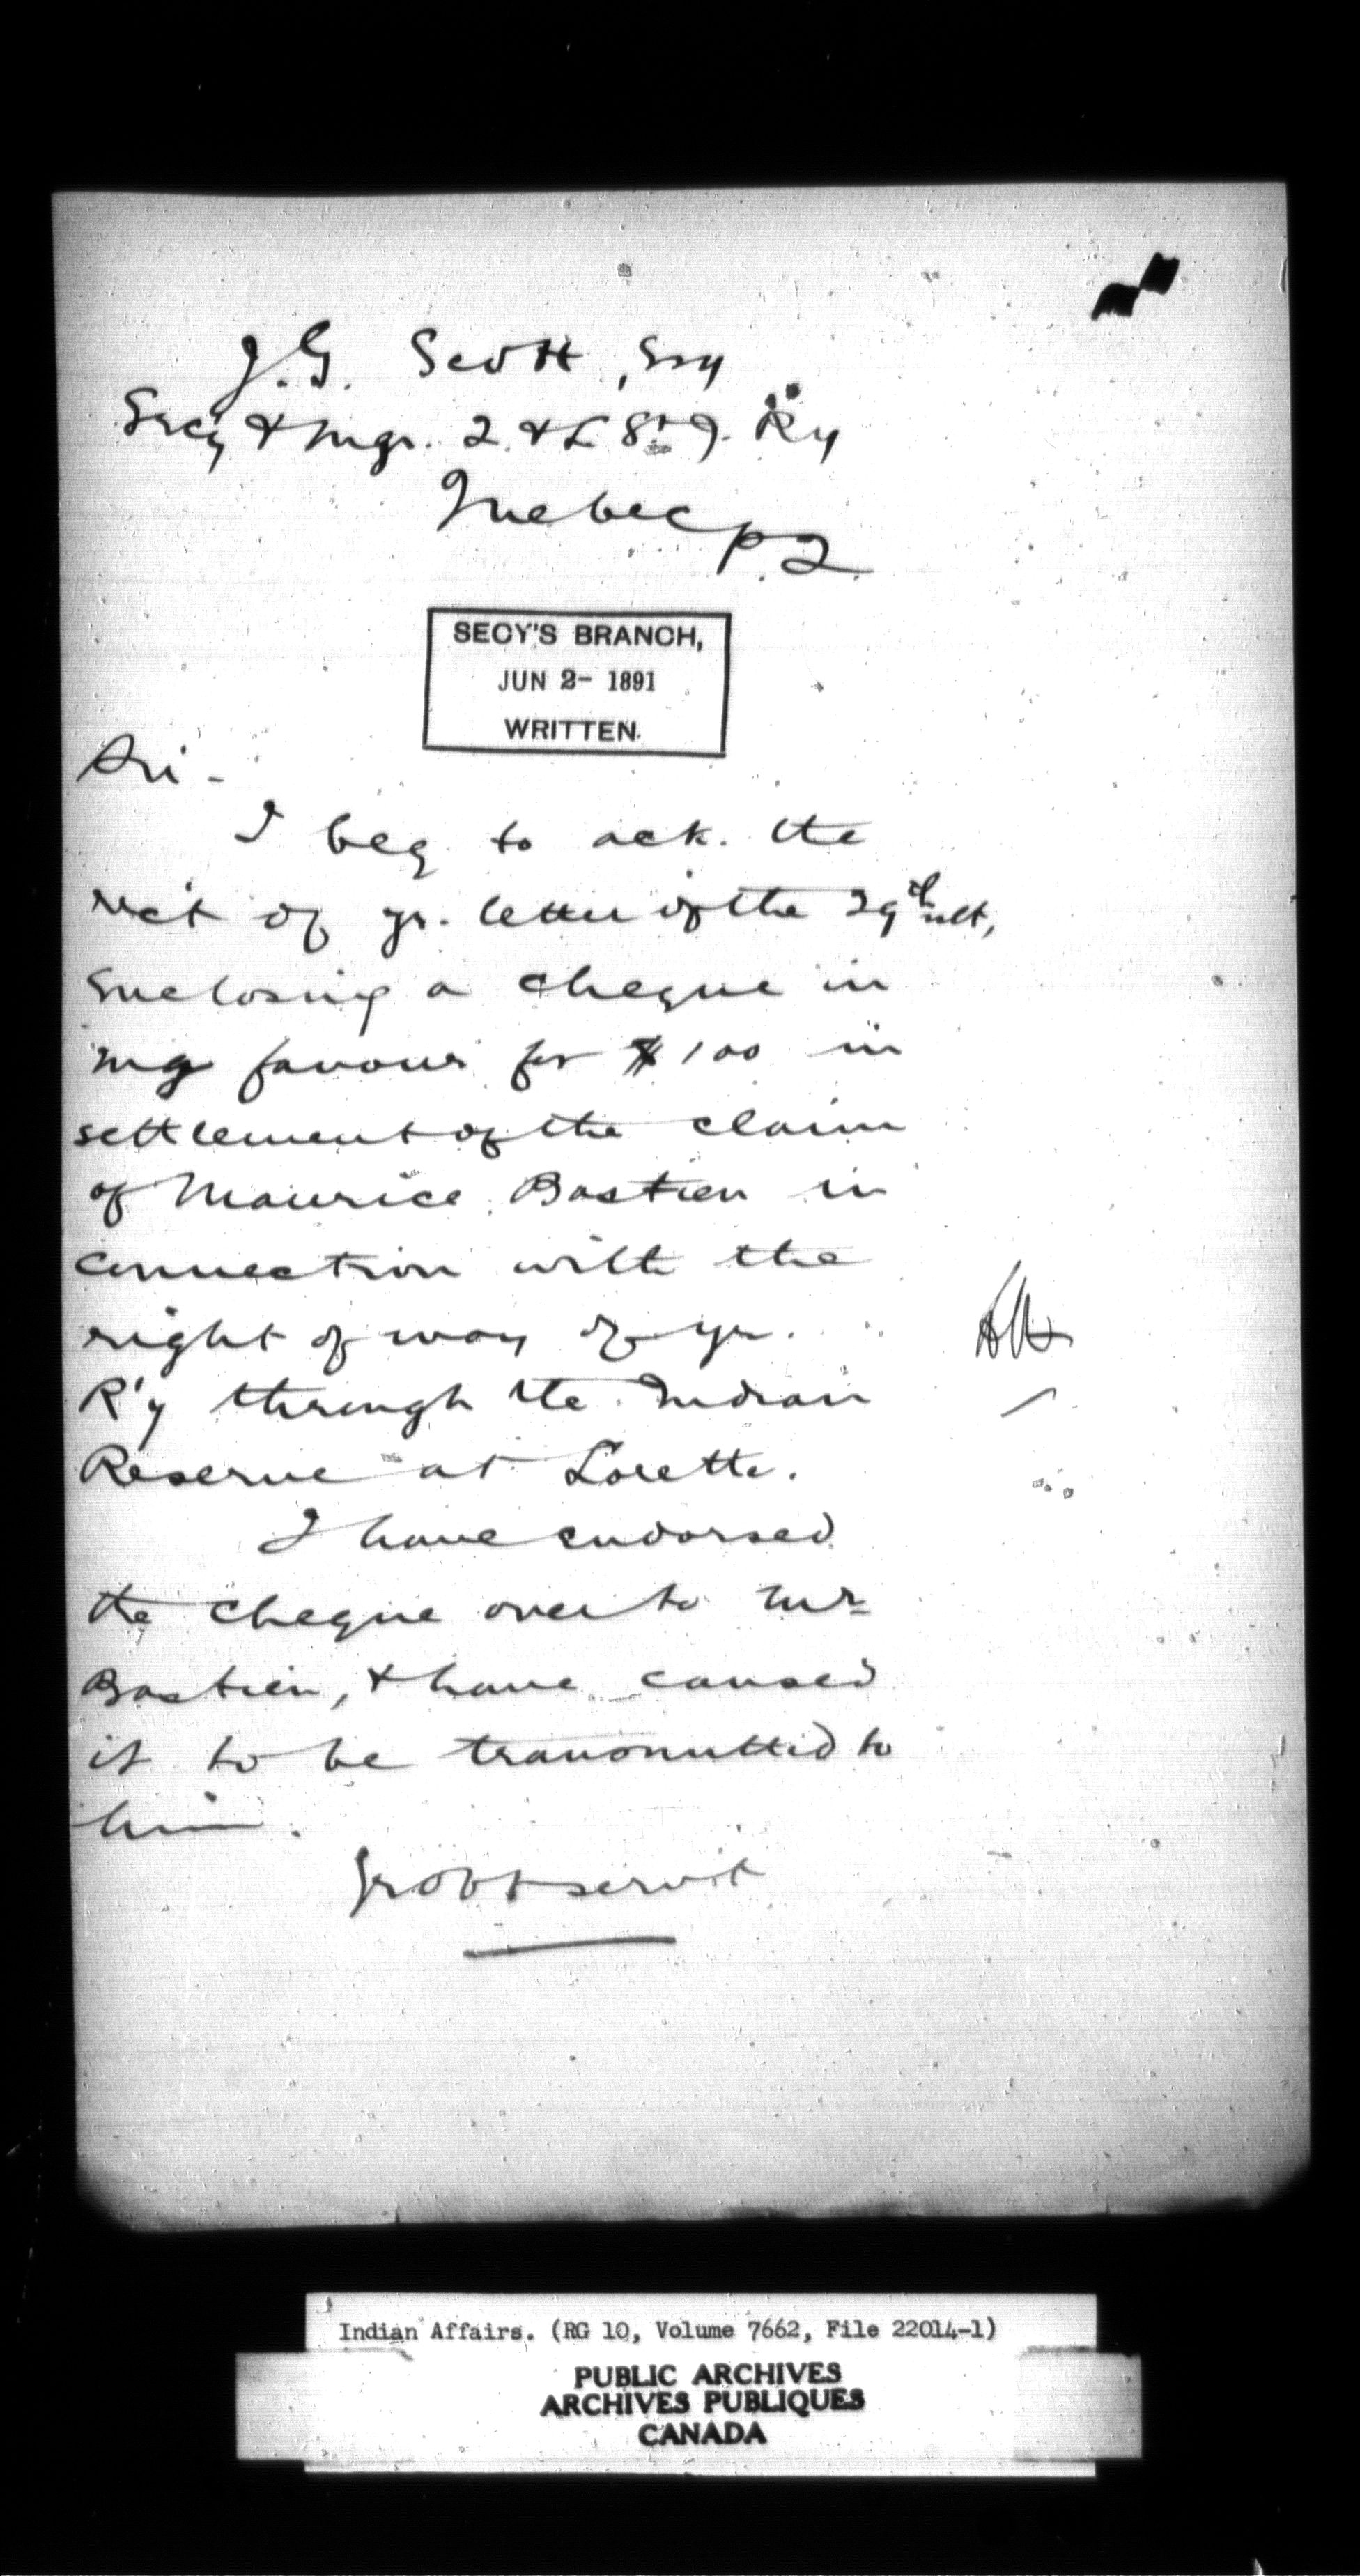 J.G. Scott, Esq
Secy & Mgr. Q. & L St J. Ry
Quebec P.Q.
SECY'S BRANCH,
JUN 2- 1891
WRITTEN.
Sir -
I beg to ack. the
rec't of yr. letter of the 29th ult,
enclosing a cheque in
my favour for $100 in
settlement of the claim
of Maurice Bastien in
connection with the
right of way of yr.
R'y through the Indian
Reserve at Lorette.
I have endorsed
the cheque over to Mr
Bastien, & have caused
it to be transmitted to
him.
Yr obt serv't
Indian Affairs. (RG 10, Volume 7662, File 22014-1)
PUBLIC ARCHIVES
ARCHIVES PUBLIQUES
CANADA